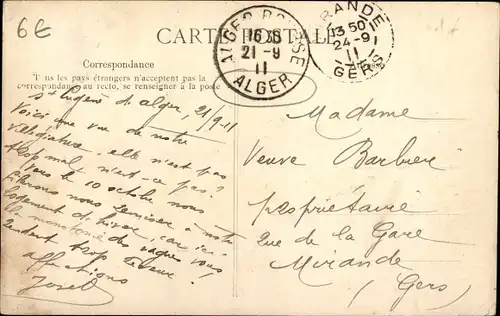 6€
CARTE POSTALE
ALGER BOURSE
16 30
21 - 9
11
ALGER
MIRANDE
13 50
24 - 9
11
GERS
Correspondance
Tous les pays étrangers n'acceptent pas la
correspondance au recto, se renseigner à la poste
St Eugène d'Alger, 21/9-11
Voici une vue de notre
villégiature. elle n'est pas
trop mal n'est-ce pas?
Vers le 10 octobre nous
pensons nous
logement d'hiver, car ici
la monotonie des vagues vous
rendent trop
affections
Josel
Madame
Veuve Barbieri
propriétaire
rue de la Gare
Mirande
(Gers)